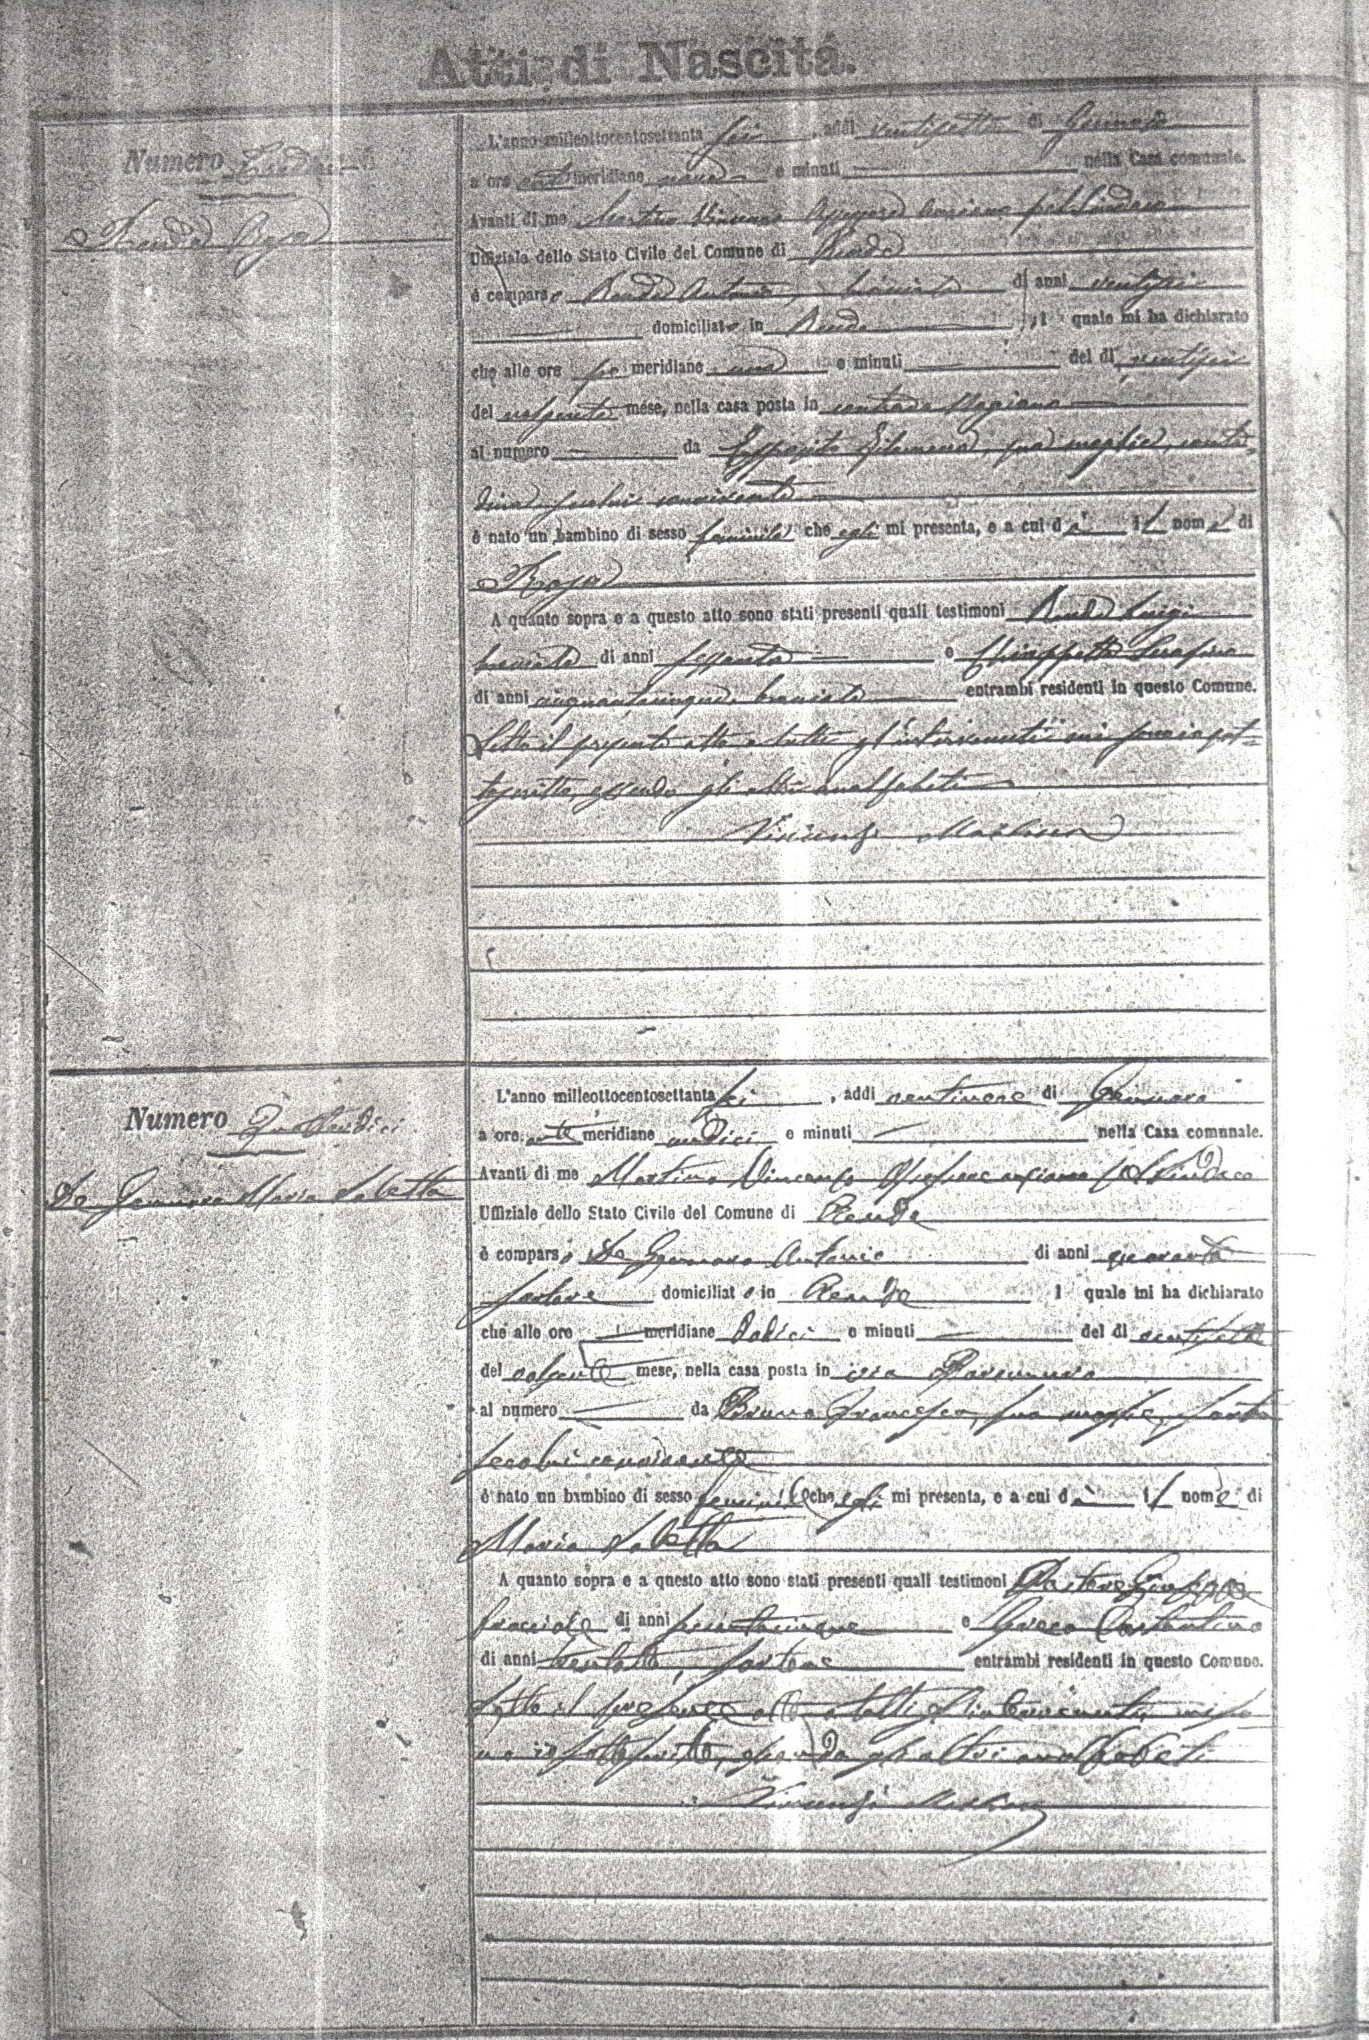 Atti di Nascita.
Numero
Renda Rosa
L'anno milleottocentosettanta sei, addì ventisette di Gennaro
a ore anti meridiane nove e minuti — nella Casa comunale.
Avanti di me Martino Vincenzo Assessore anziano pel Sindaco
Uffiziale dello Stato Civile del Comune di Rende
è comparso Renda Antonio, bracciale di anni ventisei
domiciliato in Rende, il quale mi ha dichiarato
che alle ore po meridiane una e minuti — del dì ventisei
del volgente mese, nella casa posta in contrada
al numero — da Esposito Filomena, sua moglie, conta=
dina seco lui convivente
è nato un bambino di sesso feminile che egli mi presenta, e a cui dà il nome di
Rosa
A quanto sopra e a questo atto sono stati presenti quali testimoni Renda Luigi
bracciale di anni sessanta e Chiappetta Serafino
di anni cinquantacinque bracciale entrambi residenti in questo Comune.
Letto il presente atto a tutti gl'intervenuti mi sono io sot=
toscritto, essendo gli altri analfabeti
Vincenzo Martino
Numero Quindici
De Gennaro Maria Sabetta
L'anno milleottocentosettanta sei, addì ventinove di Gennaro
a ore anti meridiane undici e minuti — nella Casa comunale.
Avanti di me Martino Vincenzo Assessore anziano pel Sindaco
Uffiziale dello Stato Civile del Comune di Rende
è comparso De Gennaro Antonio di anni quaranta
sartore domiciliato in Rende il quale mi ha dichiarato
che alle ore — meridiane dodici e minuti — del dì ventisette
del volgente mese, nella casa posta in via
al numero — da Bruno Francesca, sua moglie, sarta
seco lui convivente
è nato un bambino di sesso feminile che egli mi presenta, e a cui dà il nome di
Maria Sabetta
A quanto sopra e a questo atto sono stati presenti quali testimoni Pastore Giuseppe
bracciale di anni e Greco Costantino
di anni trentotto, sartore entrambi residenti in questo Comune.
Letto il presente atto a tutti gl'intervenuti, mi so
no io sottoscritto, essendo gli altri analfabeti
Vincenzo Martino